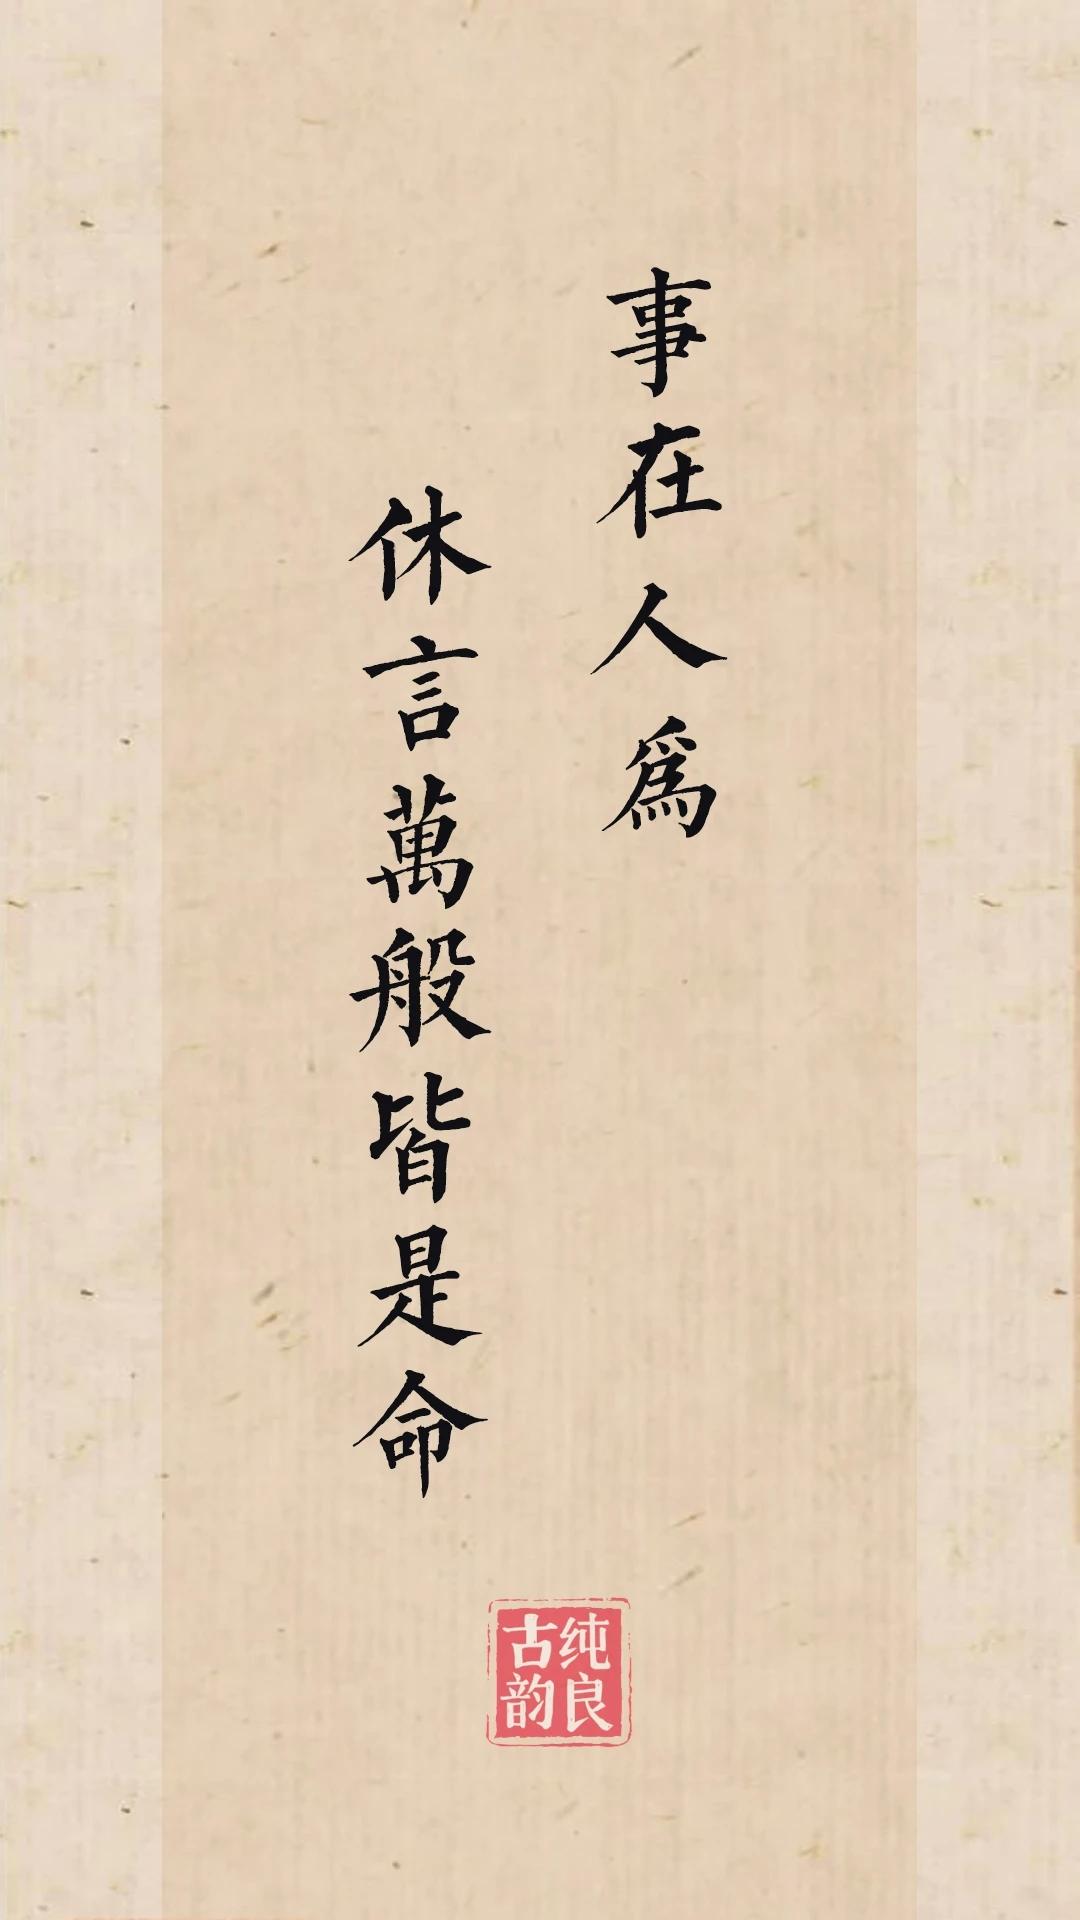 事在人爲
休言萬般皆是命
纯良
古韵